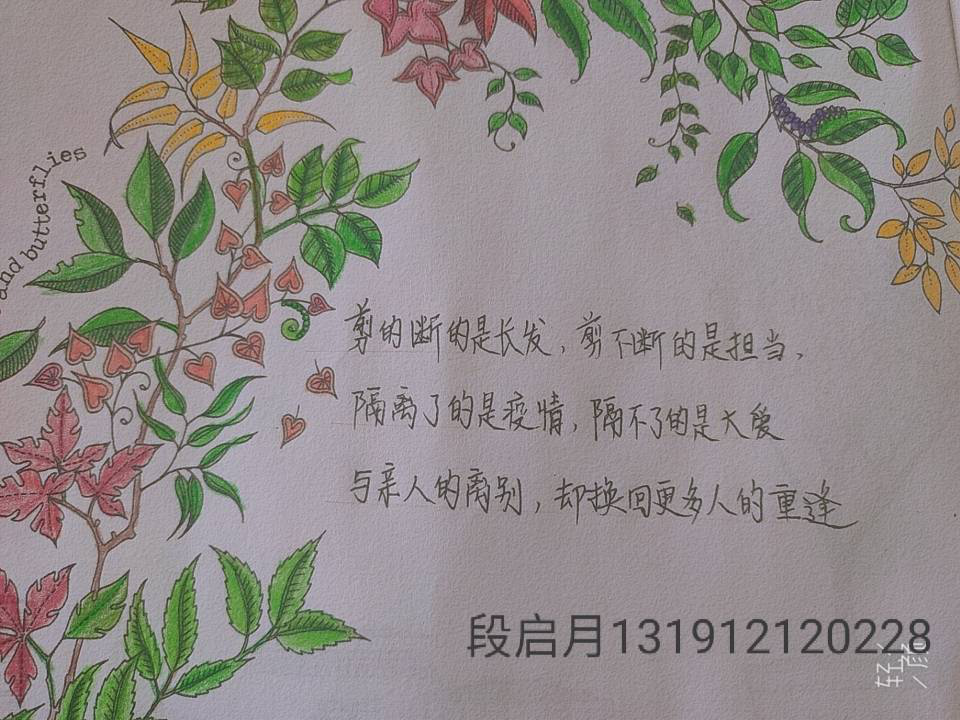 and butterflies
剪的断的是长发，剪不断的是担当，
隔离了的是疫情，隔不了的是大爱
与亲人的离别，却换回更多人的重逢
段启月131912120228
轻颜